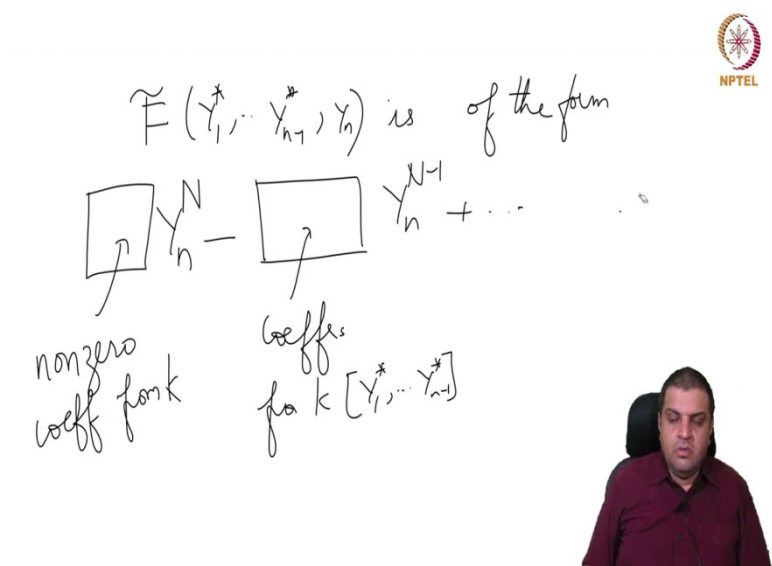 NPTEL
F̃ (Y₁*, .. Yₙ₋₁*, Yₙ) is of the form
Yₙᴺ – Yₙᴺ⁻¹ + ... .
nonzero coeffs
coeff from k for k [Y₁*, ... Yₙ₋₁*]